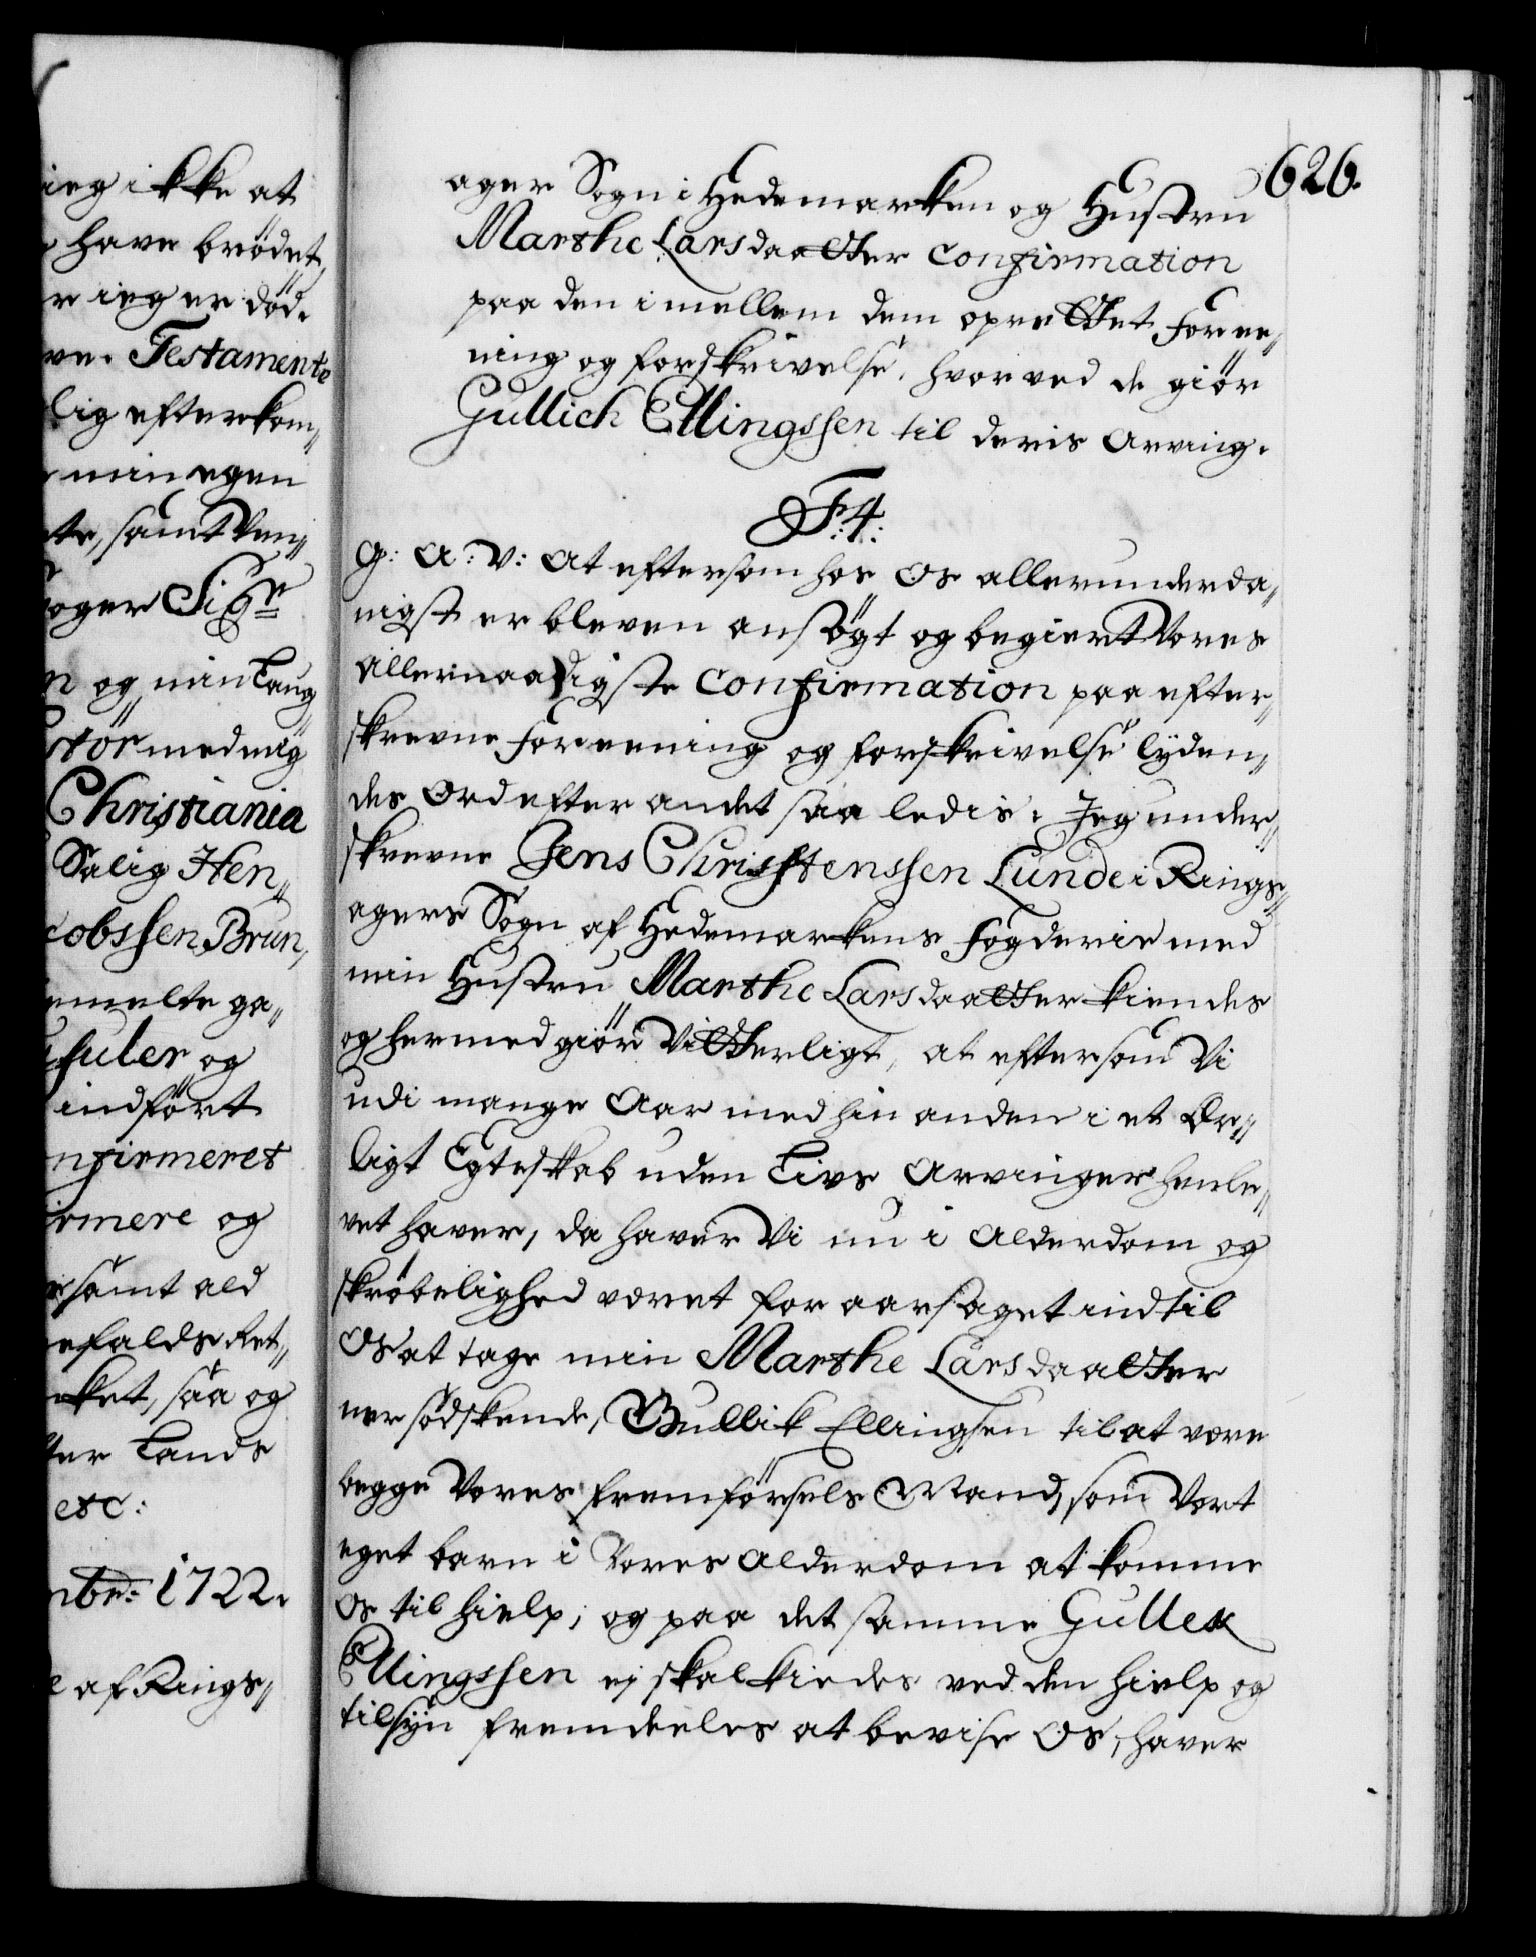 ieg ikke at
have brødet,
r ieg er død.
ve. Testamente
lig efterkom„
min egen
te, samt Ven„
oger Sigr
n og min Laug
stør med mig
Christiania
Salig Hen„
cobssen Brun,
emelte ga„
fuler, og
indført
nfirmeret
rmere og
samt ald
efalds Ret„
ket, saa og
ter Lands
etc:
nbr: 1722.
e af Rings„
626.
ager Sogn i Hedemarken og Hustru
Marthe Larsdaatter Confirmation
paa den imellem dem oprettet Foree„
ning og forskrivelse, hvorved de giør
Gullich Ellingssen til deris Arving.
F: 4:
G: A: V: At eftersom hos Os allerunderda„
nigst er bleven ansøgt og begiert Vores
Allernaadigste Confirmation paa efter„
skrevne Foreening og forskrivelse lyden„
des Ord efter andet saaledis. Jeg under„
skrevne Jens Christenssen Lunde i Rings„
agers Sogn af Hedemarkens Fogderie med
min Hustru Marthe Larsdaatter kiendes
og hermed giør Vitterligt, at eftersom Vi
udi mange Aar med hin anden i et Kier„
ligt Egteskab uden Livs Arvinger henle„
vet haver, da haver Vi nu i Alderdom og
skrøbelighed været foraarsaget ind til
Os at tage min Marthe Larsdaatter
ner sødskende, Gullik Ellingsen til at være
begge Vores fremførsels Mand, som Vort
eget barn i Vores Alderdom at komme
Os til hielp; og paa det samme Gullek
Ellingssen ej skal kiedes ved den hielp og
tilsyn fremdeeles at bevise Os, haver